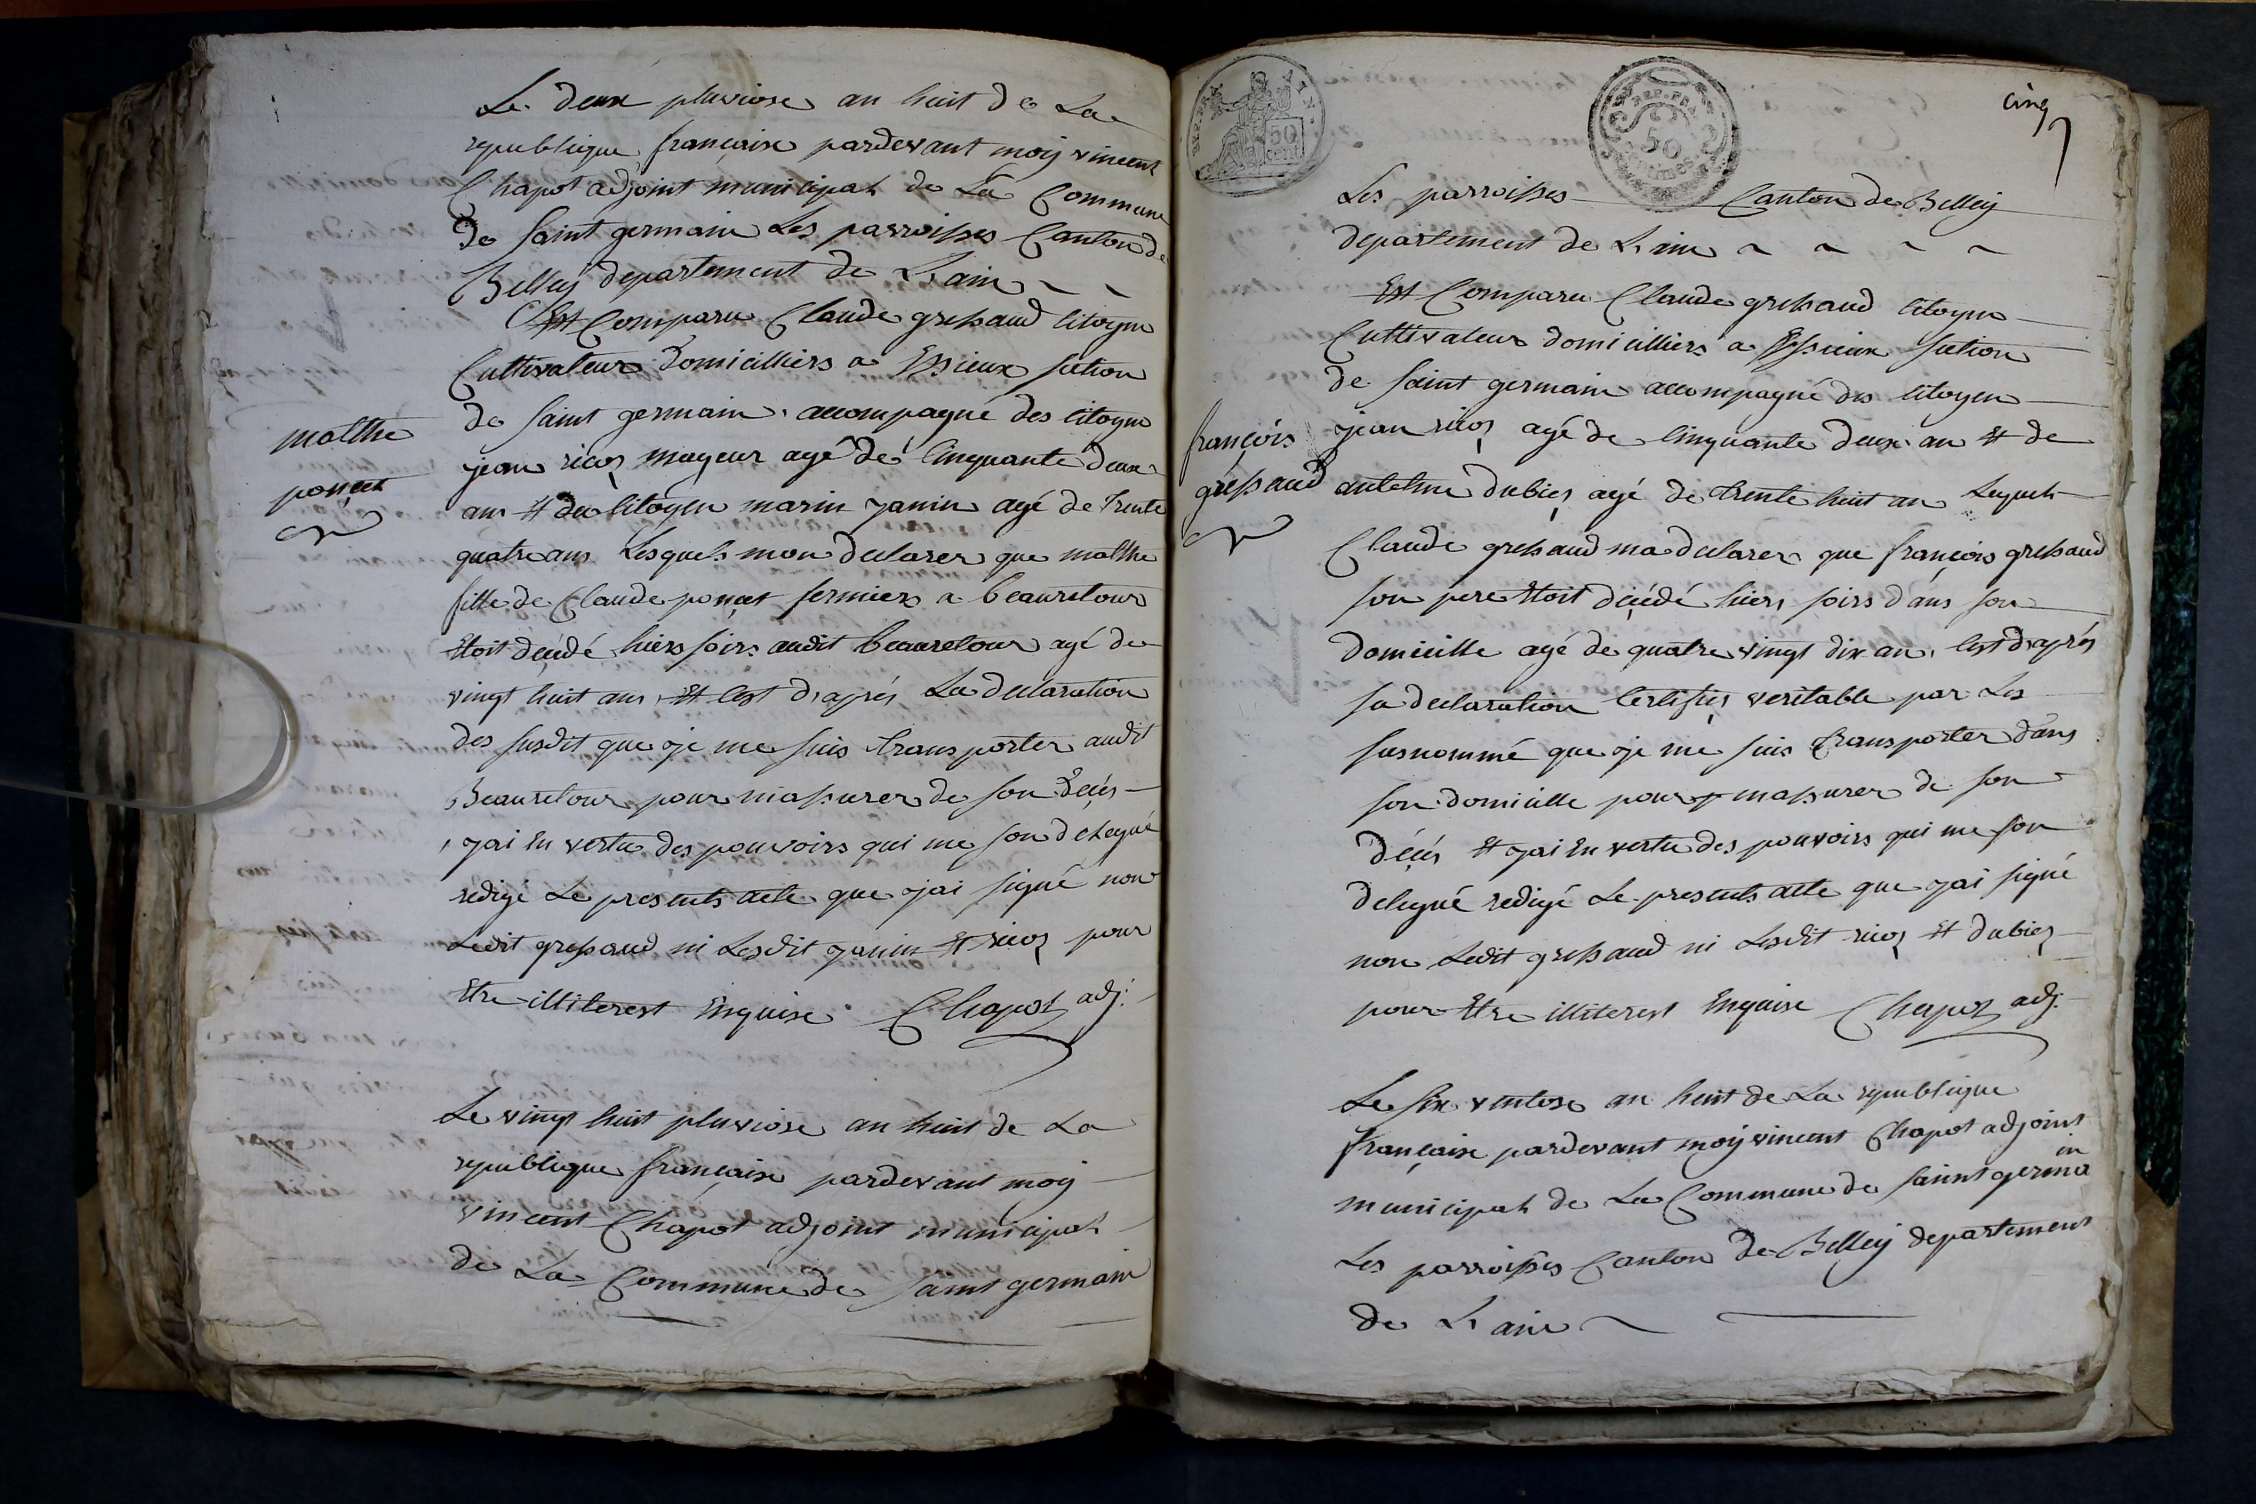 Le deux pluviose an huit de La
republique française pardevant moy vincent
Chapot adjoint municipal de La Commune
de Saint germain Les parroisses Canton de
Belley departement de L'ain
Est Comparu Claude gressaud citoyen
Cultivateur domicilliers a Essieux section
de Saint germain accompagné des citoyen
jean ricoz mayeur agé de Cinquante deux
ans et du citoyen marin janin agé de trente
quatre ans Lesquels mon declarer que matthe
fille de Claude ponçet fermiers a beauretour
etoit déçédé hiers soirs audit beauretour agé de
vingt huit ans et cest d'aprés La declaration
des susdit que je me suis transporter audit
Beauretour pour m'assurer de son Deçés
jai En vertu des pouvoirs qui me son delegué
redigé Le presents acte que jai signé non
Ledit gressaud ni Lesdit janin et ricoz pour
Etre illiterest Enquise Chapot adj:
matthe
ponçet
Le vingt huit pluviose an huit de La
republique française pardevant moy
vincent Chapot adjoint municipal
de La Commune de Saint germain
cinq
REP. FRA
50
CENT
REP. FRA
50
centimes
Les parroisses Canton de Belley
departement de L'ain
Est Comparu Claude gressaud citoyen
Cultivateur domicilliers a Essieux section
de Saint germain accompagné des citoyen
jean ricoz agé de Cinquante deux an et de
antelme dubiez agé de trente huit an Lequels
Claude gressaud ma declarer que françois gressaud
son pere etoit déçédé hiers soirs dans son
domicille agé de quatre vingt dix an, cest d'aprés
sa declaration Certifiez veritable par Les
susnommé que je me suis transporter dans
son domicille pour massurer de son
déçés et jai En vertu des pouvoirs qui me son
delegué redigé Le presents acte que jai signé
non Ledit gressaud ni Lesdit ricoz et dubiez
pour Etre illiterest Enquise Chapot adj.
françois
gressaud
Le six ventose an huit de La republique
française pardevant moy vincent Chapot adjoint
municipal de La Commune de Saint germain
Les parroisses Canton de Belley departement
de L'ain